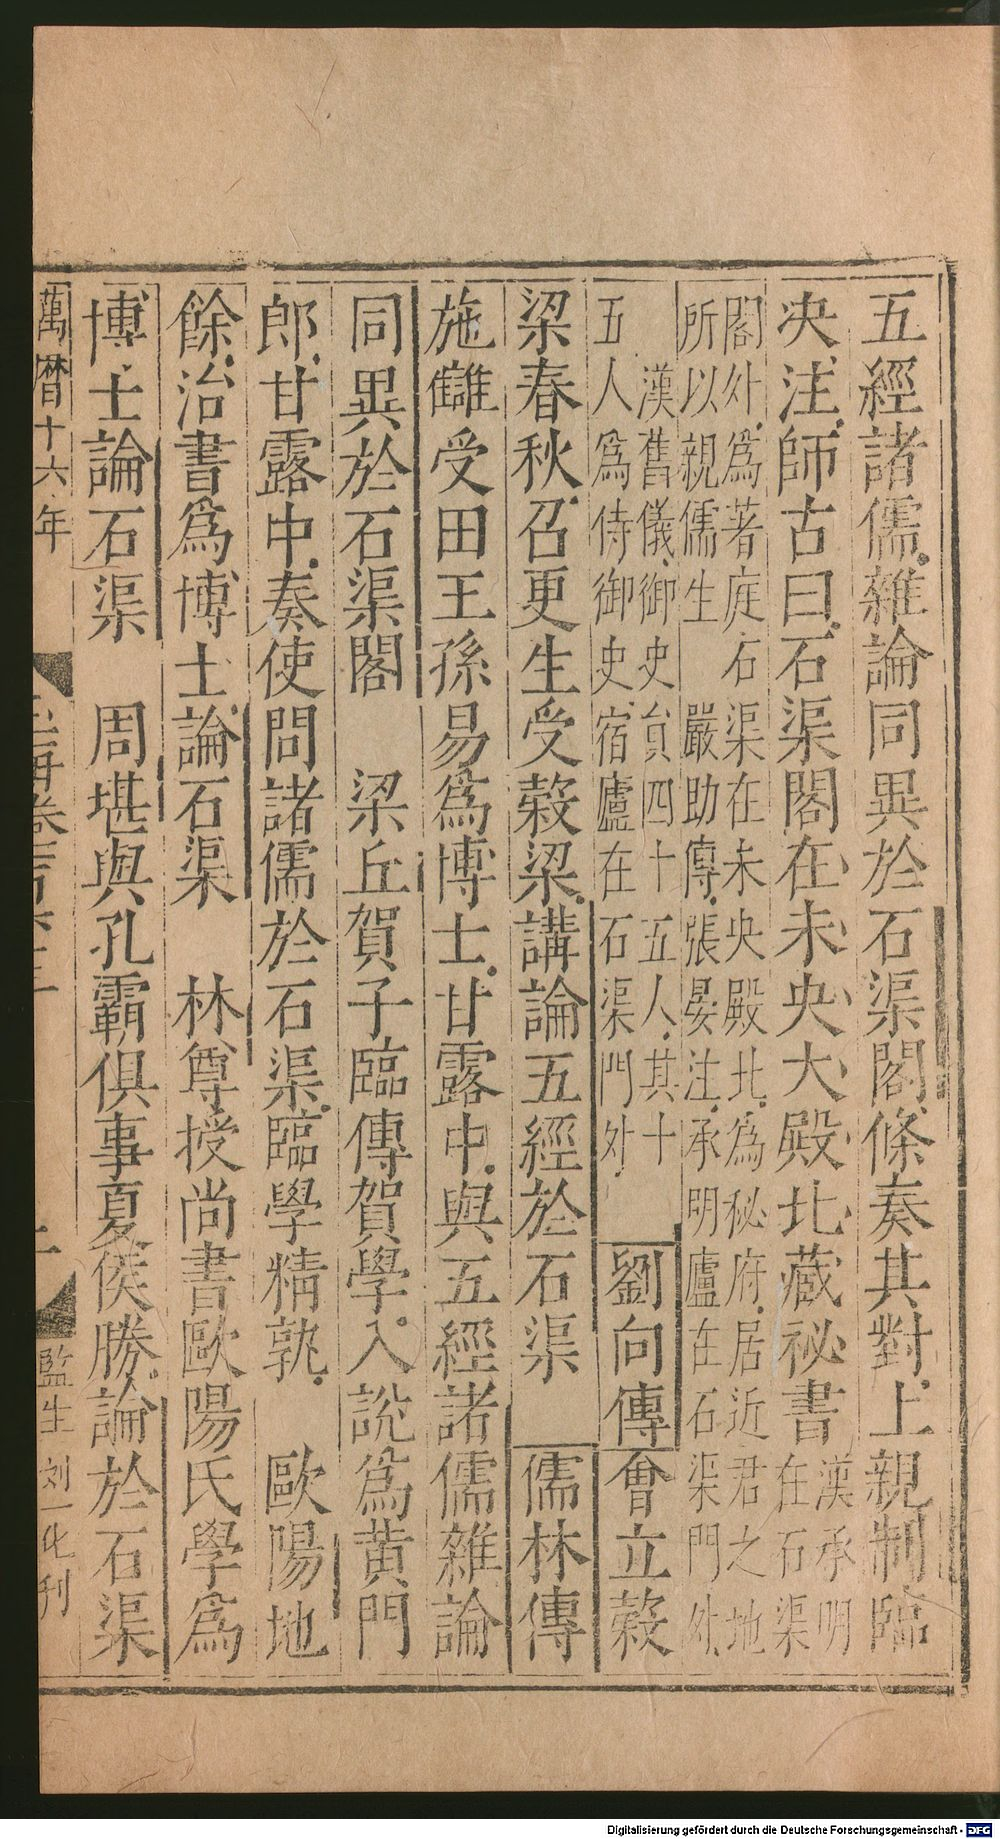 五經諸儒雜論同異於石渠閣條奏其對上親制臨
決注師古曰石渠閣在未央大殿北藏祕書
漢承明
在石渠
閣外爲著庭石渠在未央殿北爲秘府居近君之地
所以親儒生 嚴助傳張晏注承明廬在石渠門外
漢舊儀御史員四十五人其十
五人爲侍御史宿廬在石渠門外
劉向傳會立榖
梁春秋召更生受榖梁講論五經於石渠 儒林傳
施讎受田王孫易爲博士甘露中與五經諸儒雜論
同異於石渠閣 梁丘賀子臨傳賀學入說爲黃門
郎甘露中奏使問諸儒於石渠臨學精孰 歐陽地
餘治書爲博士論石渠 林尊授尚書歐陽氏學爲
博士論石渠 周堪與孔霸俱事夏侯勝論於石渠
萬曆十六年
監生刘一化刊
Digitalisierung gefördert durch die Deutsche Forschungsgemeinschaft - DFG